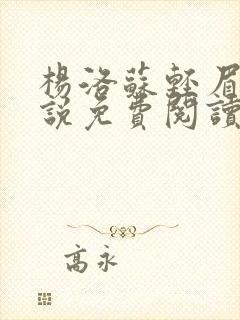 楊洛蘇輕眉
說免費閱讀
高永